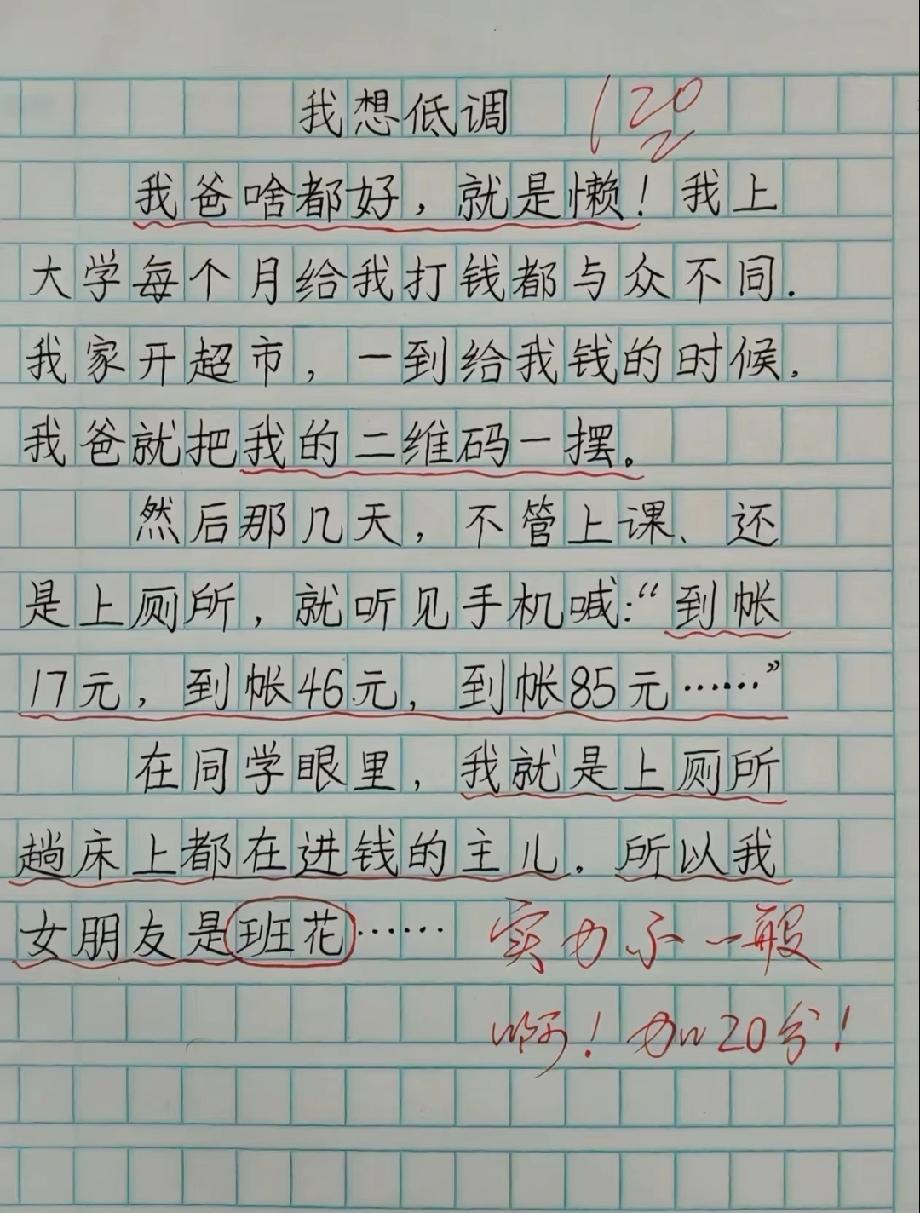 我想低调 120
我爸啥都好，就是懒！我上
大学每个月给我打钱都与众不同.
我家开超市，一到给我钱的时候，
我爸就把我的二维码一摆。
然后那几天，不管上课、还
是上厕所，就听见手机喊:“到帐
17元，到帐46元，到帐85元……”
在同学眼里，我就是上厕所
趟床上都在进钱的主儿．所以我
女朋友是班花…… 实力不一般
啊！加20分！